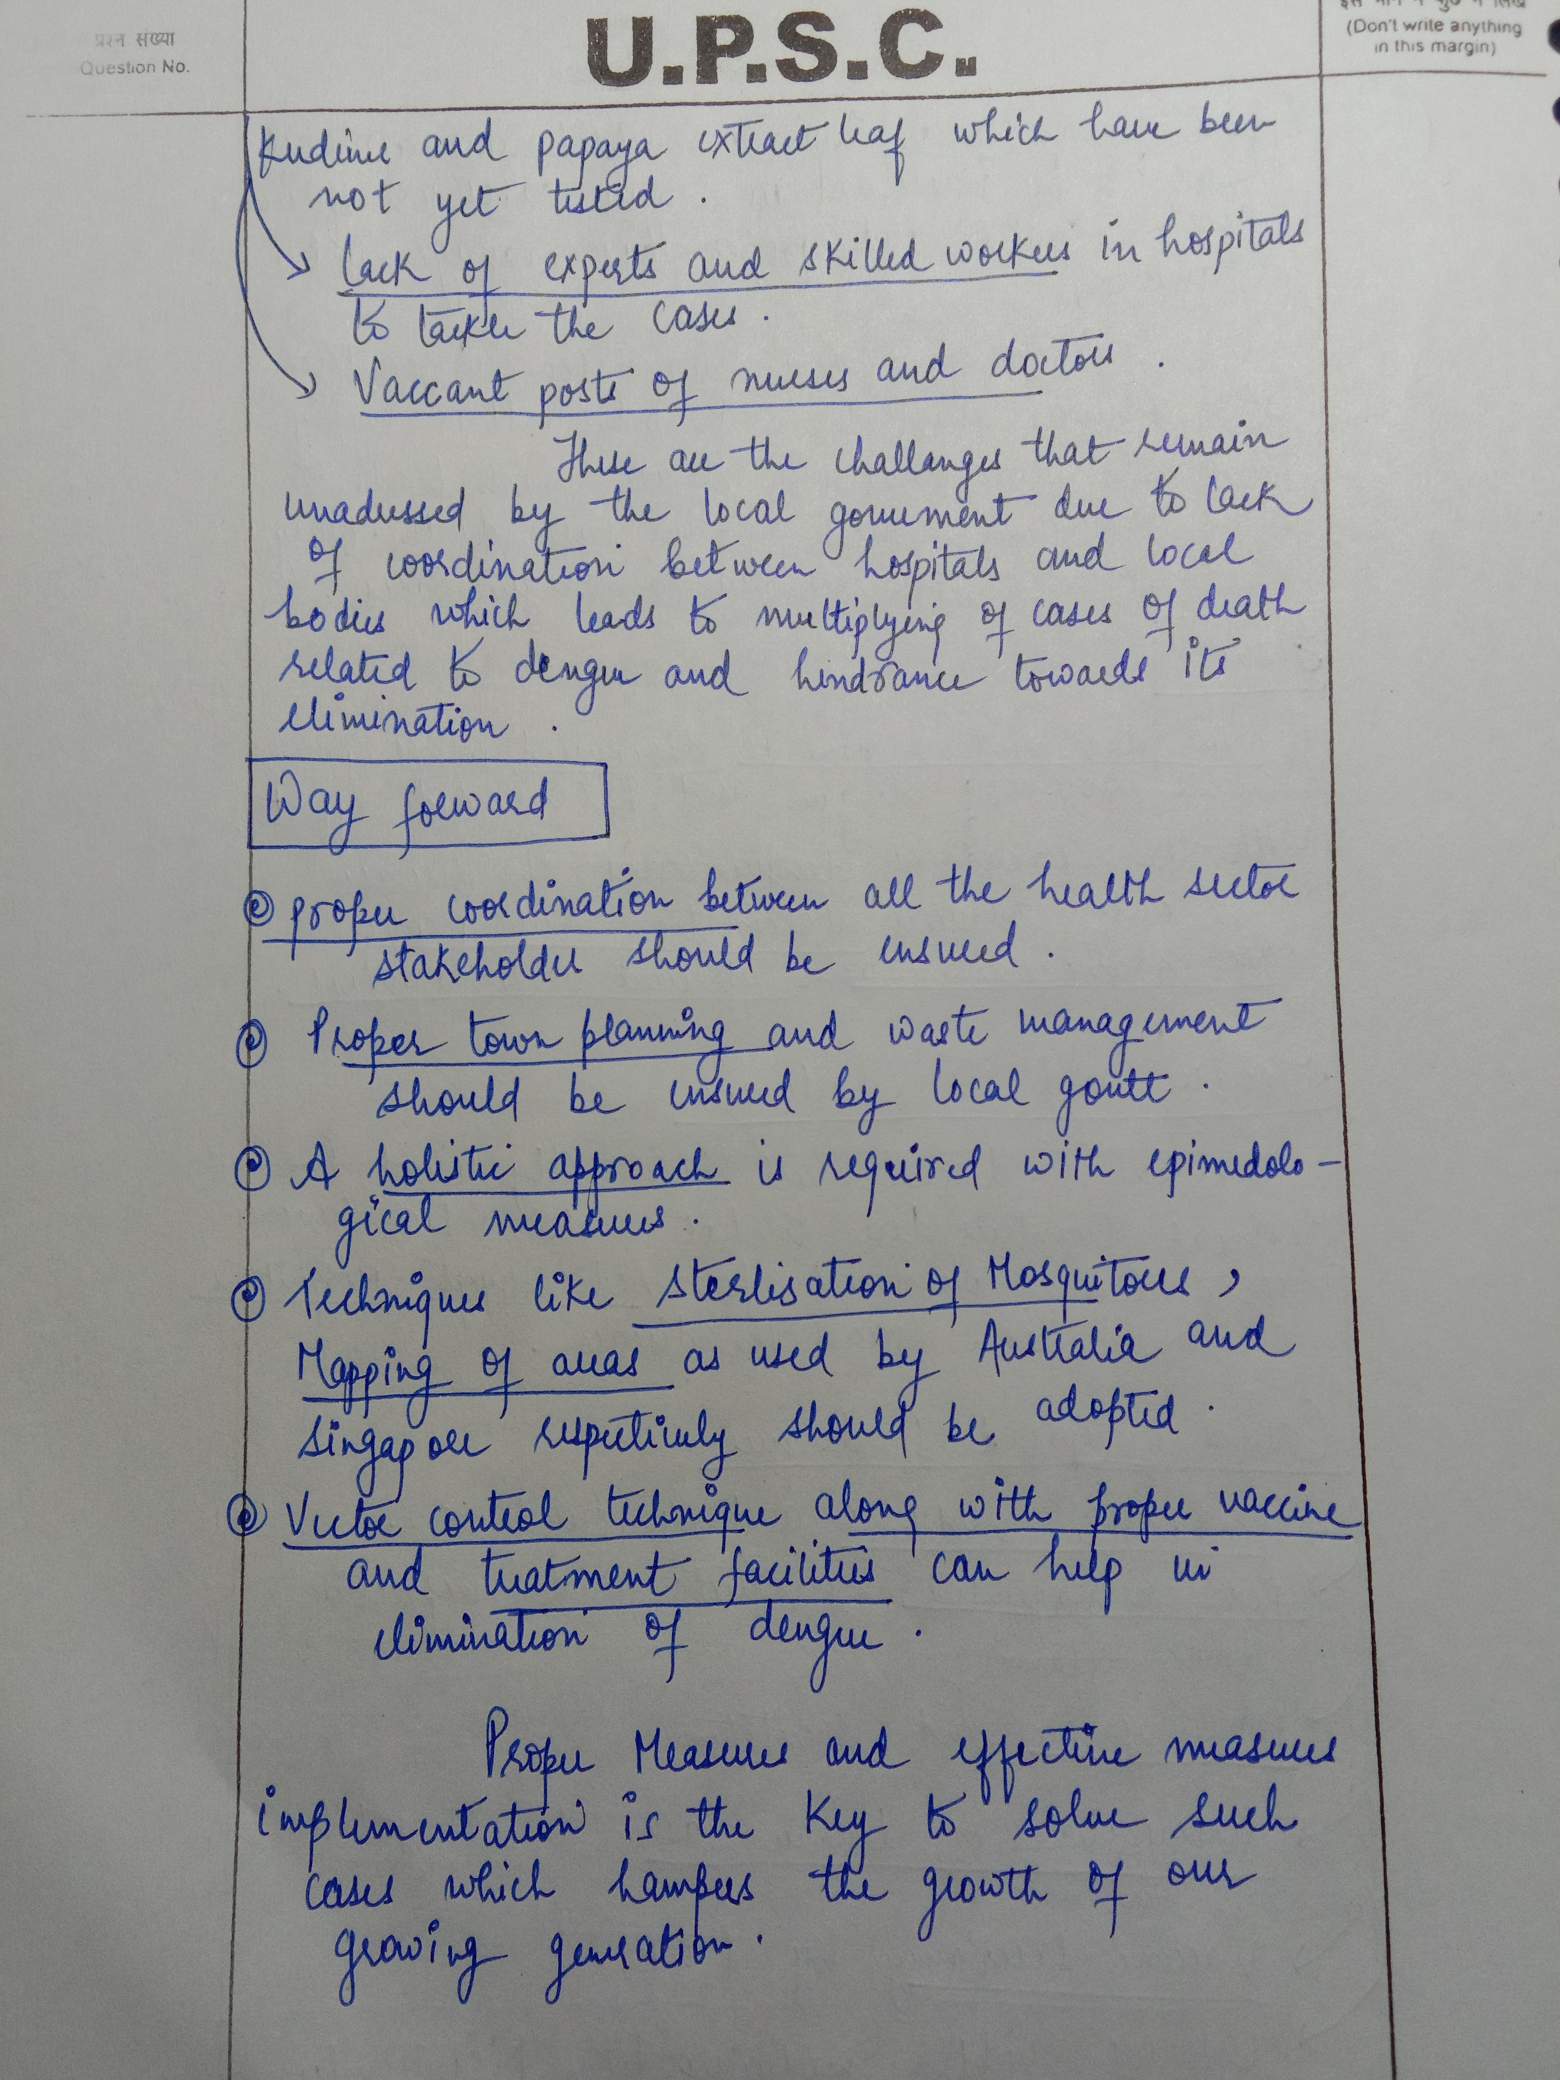 प्रश्न संख्या
Question No.
U.P.S.C.
(Don't write anything
in this margin)
and papaya extract leaf which have been
not yet tested.
Lack of experts and skilled workers in hospitals
to tackle the cases.
Vaccant posts of nurses and doctors.
These are the challanges that remain
unadressed by the local government due to lack
of coordination between hospitals and local
bodies which leads to multiplying of cases of death
related to dengue and hindrance towards its
elimination.
Way forward
proper coordination between all the health sector
stakeholder should be ensured.
Proper town planning and waste management
should be ensured by local govtt.
A holistic approach is required with epimedolo-
gical measures.
Techniques like sterlisation of Mosquitoes,
Mapping of areas as used by Australia and
Singapore respectively should be adopted.
Vector control technique along with proper vaccine
and treatment facilities can help in
elimination of dengue.
Proper Measures and effective measures
implementation is the key to solve such
cases which hampers the growth of our
growing generation.